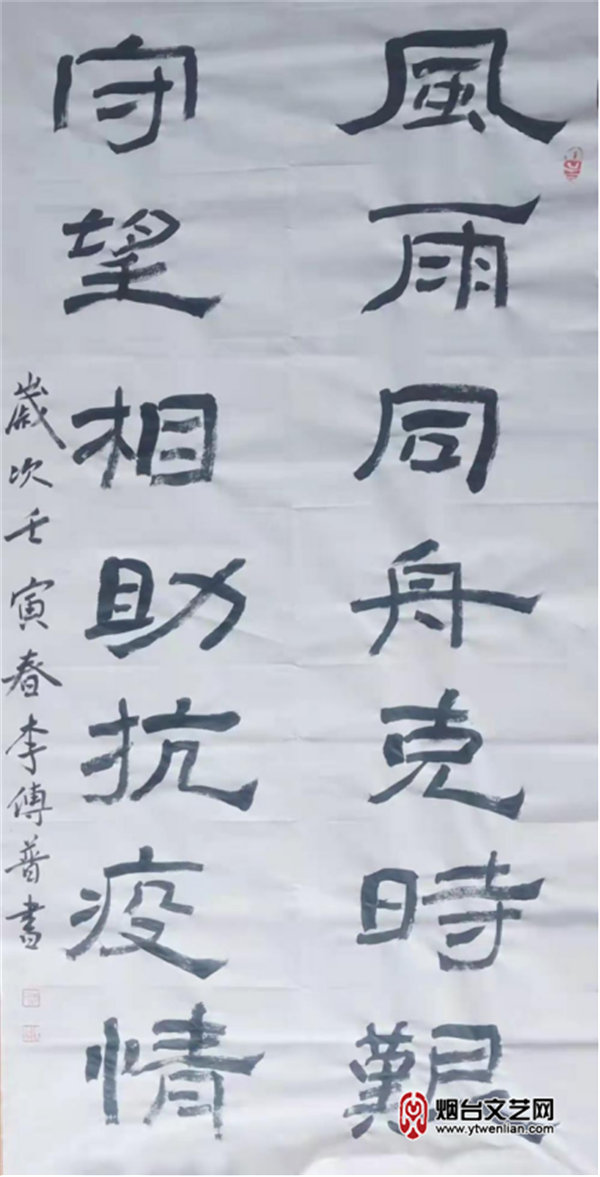 風雨同舟克時艱
守望相助抗疫情
歲次壬寅春李傳普書
烟台文艺网
www.ytwenlian.com